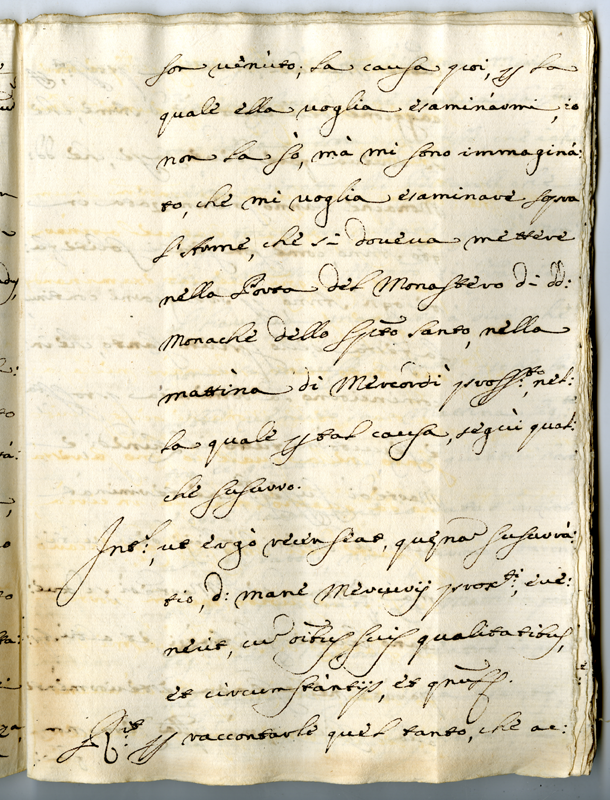 son venuto; la causa poi, p la
quale ella voglia esaminarmi, io
non la sò, mà mi sono immaginá:
to, che mi voglia esaminare sopra
l'Arme, che si doveva mettere
nella Porta del Monastero di dd:
Monache dello Spto Santo, nella
mattina di Mercordì pross:to, nel:
la quale p tal causa, seguì qual:
che susurro.
Int:s, ut ergò recenseat, quena susurrá:
tio, d: mane Mercurij prox:ti, eve:
nerit, cu oibus suis qualitatibus,
et circumstantijs, et
R:it p raccontarle quel tanto, che ac: